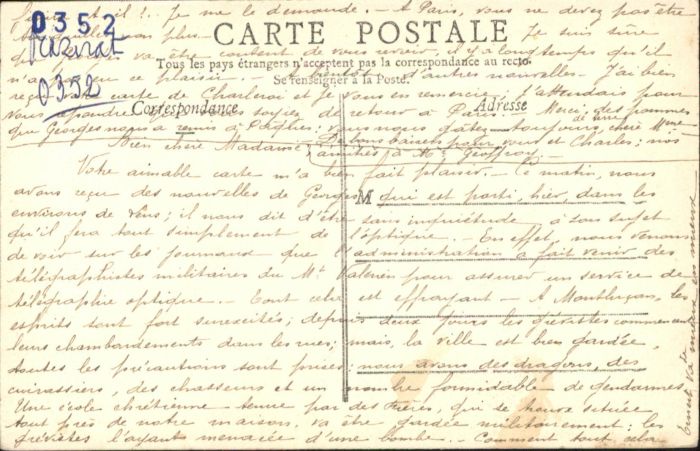 finira-t-il ?.. Je me le demande. - A Paris, vous ne devez pas être
0352
CARTE POSTALE
tranquilles non plus. Je suis sûre
Mazirat
que va être content de vous revoir, il y a longtemps qu'il
Tous les pays étrangers n'acceptent pas la correspondance au recto.
n'a eu ce plaisir. - A bientôt d'autres nouvelles. - J'ai bien
Se renseigner à la Poste.
0352
reçu carte de Charleroi et je vous en remercie, j'attendais pour
Correspondance
Adresse
vous répondre que vous soyiez de retour à Paris. Merci des pommes
de terre
que Georges nous a remis à ; vous nous gâtez toujours, chère Mme
Bien chère Madame, bons baisers pour vous et Charles ; nos
amitiés à Mr Geoffroy.
Votre aimable carte m'a bien fait plaisir. - Ce matin, nous
avons reçu des nouvelles de Georges M qui est parti hier dans les
environs de Lens ; il nous dit d'être sans inquiétude à son sujet
qu'il fera tout simplement de l'optique. - En effet, nous venons
de voir sur les journaux que l'administration a fait venir des
télégraphistes militaires du Mt Valérien pour assurer un service de
télégraphie optique. - Tout cela est effrayant - A Montluçon, les
esprits sont fort surexcités ; depuis deux jours les grévistes commencent
leurs chambardements dans les rues ; mais, la ville est bien gardée,
toutes les précautions sont prises ; nous avons des dragons, des
cuirassiers, des chasseurs et un nombre formidable de gendarmes.
Une école chrétienne tenue par des Frères, qui se trouve située
tout près de notre maison, va être gardée militairement ; les
grévistes l'ayant menacée d'une bombe. - Comment tout cela